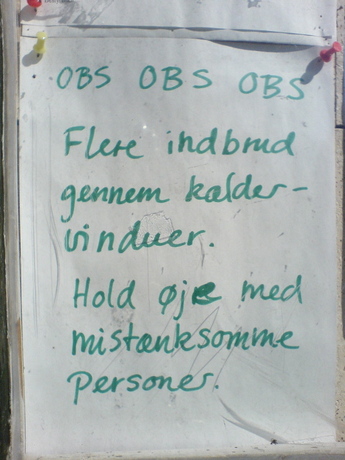 OBS OBS OBS
Flere indbrud
gennem kælder-
vinduer.
Hold øje med
mistænksomme
personer.